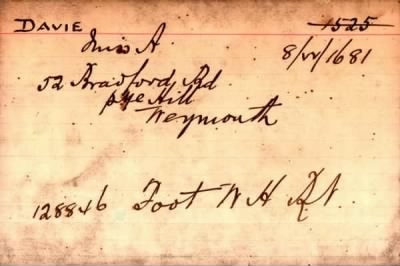 DAVIE 1525
Miss A. 8/W/1681
52 Bradford Rd
Weymouth
128846 Foot W H RN.